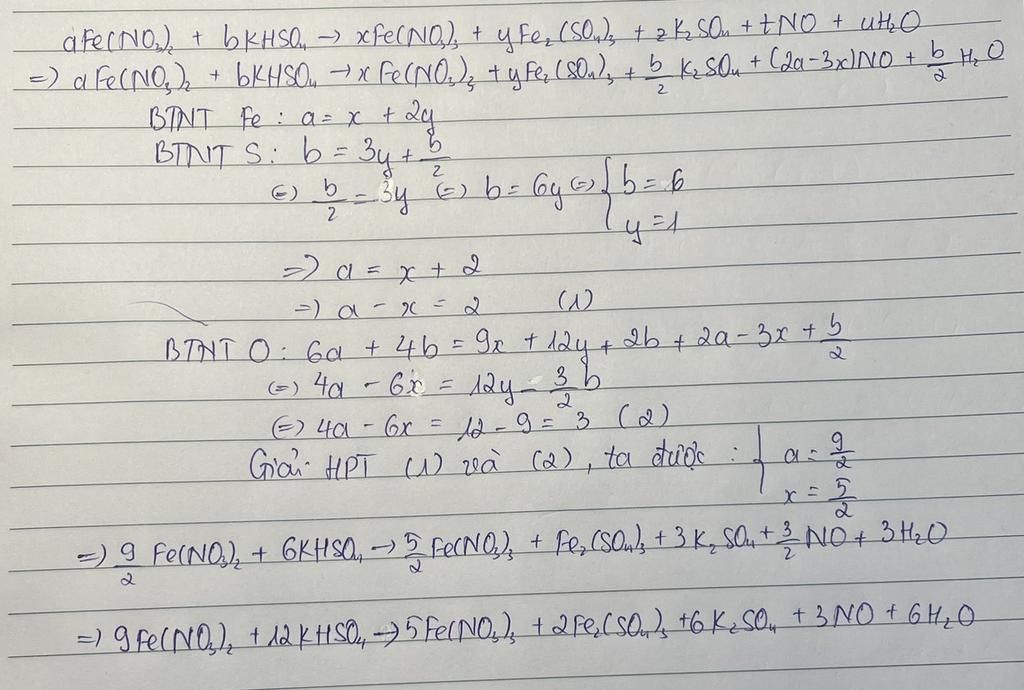 aFe(NO₃)₂ + bKHSO₄ → xFe(NO₃)₃ + yFe₂(SO₄)₃ + zK₂SO₄ + tNO + uH₂O
=> aFe(NO₃)₂ + bKHSO₄ → xFe(NO₃)₃ + yFe₂(SO₄)₃ + b/2 K₂SO₄ + (2a-3x)NO + b/2 H₂O
BTNT Fe: a = x + 2y
BTNT S: b = 3y + b/2
(=) b/2 = 3y (=) b = 6y (=) { b = 6
y = 1
=> a = x + 2
=> a - x = 2 (1)
BTNT O: 6a + 4b = 9x + 12y + 2b + 2a - 3x + b/2
(=) 4a - 6x = 12y - 3/2 b
(=) 4a - 6x = 12 - 9 = 3 (2)
Giải HPT (1) và (2), ta được: { a = 9/2
x = 5/2
=> 9/2 Fe(NO₃)₂ + 6KHSO₄ → 5/2 Fe(NO₃)₃ + Fe₂(SO₄)₃ + 3K₂SO₄ + 3/2 NO + 3H₂O
=> 9Fe(NO₃)₂ + 12KHSO₄ → 5Fe(NO₃)₃ + 2Fe₂(SO₄)₃ + 6K₂SO₄ + 3NO + 6H₂O